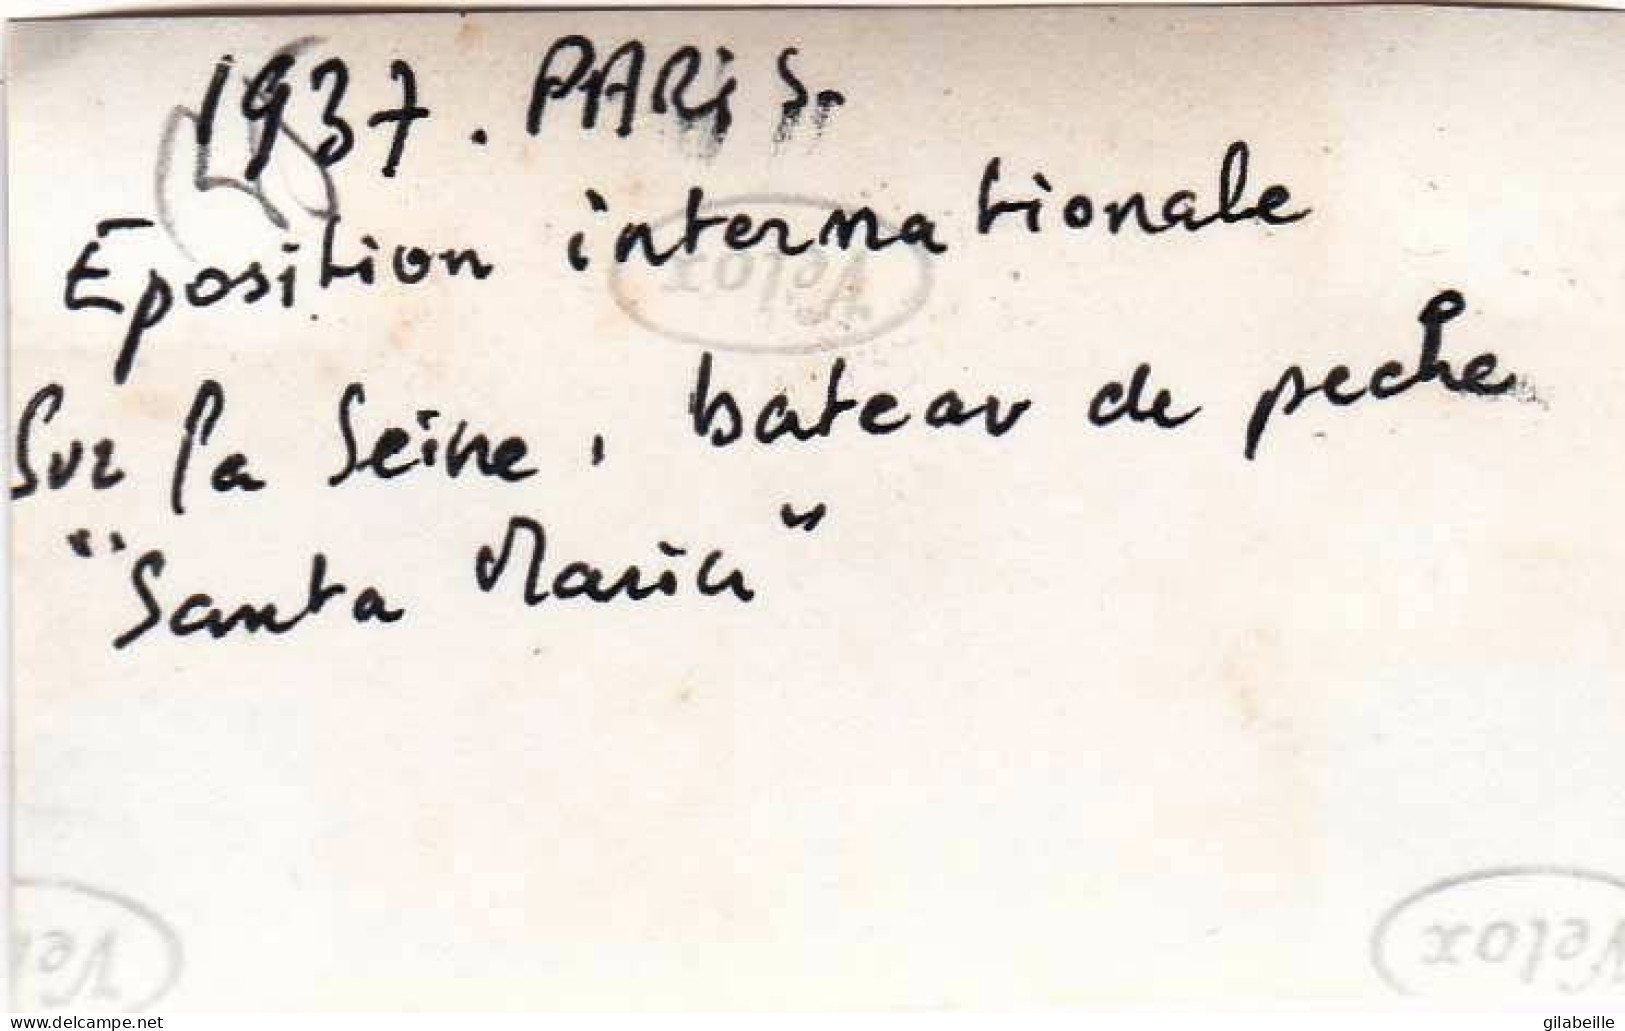 1937. PARIS.
Eposition internationale
Velox
Sur la Seine, bateau de peche
"Santa Maria"
Velox
Vel
www.delcampe.net
gilabeille